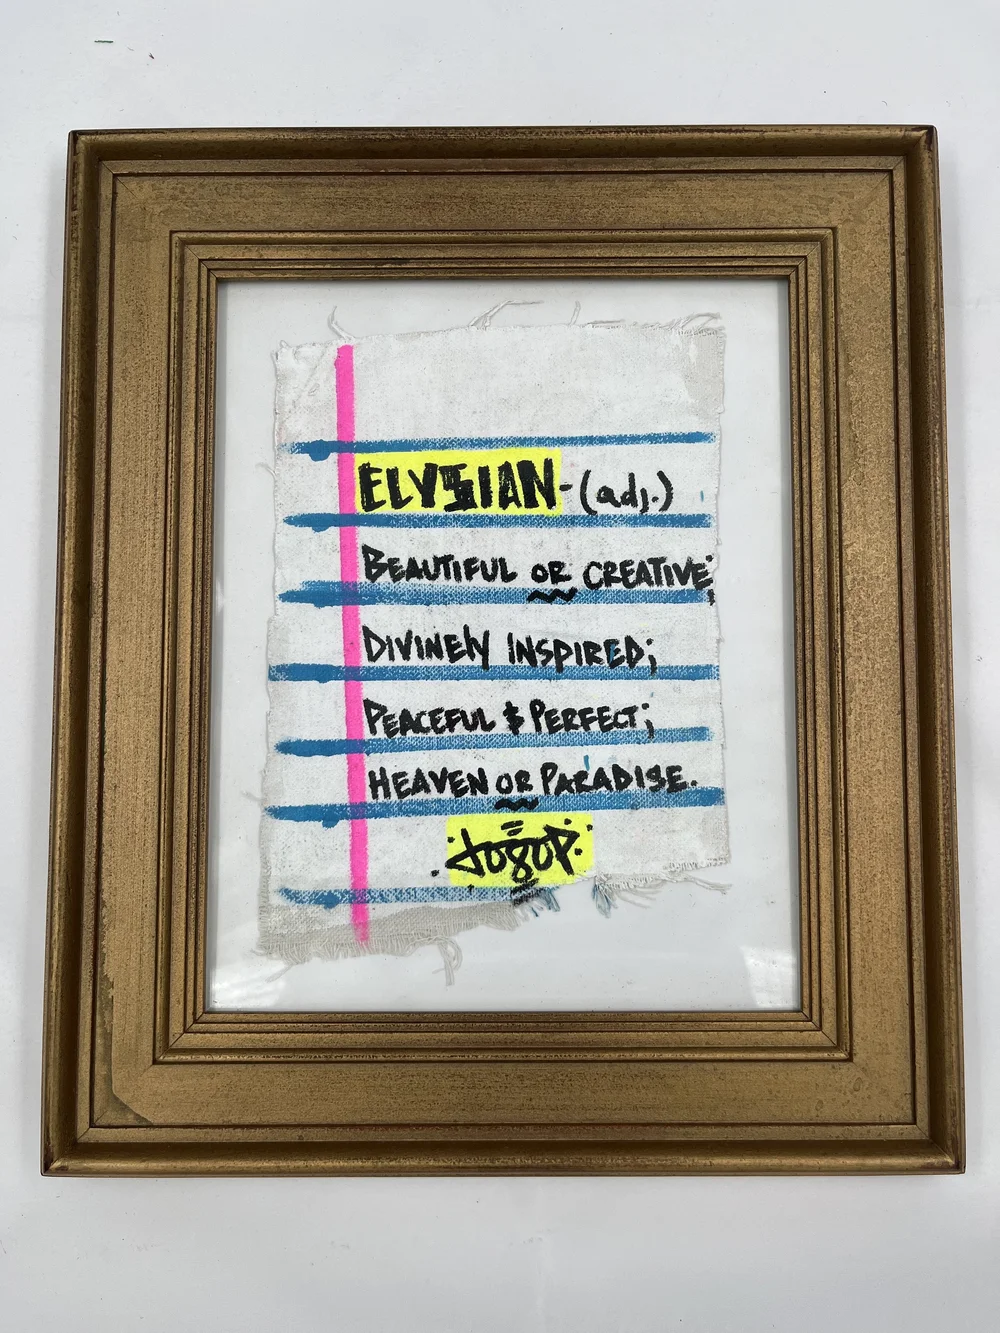 ELYSIAN - (adj.)
BEAUTIFUL OR CREATIVE;
DIVINELY INSPIRED;
PEACEFUL & PERFECT;
HEAVEN OR PARADISE.